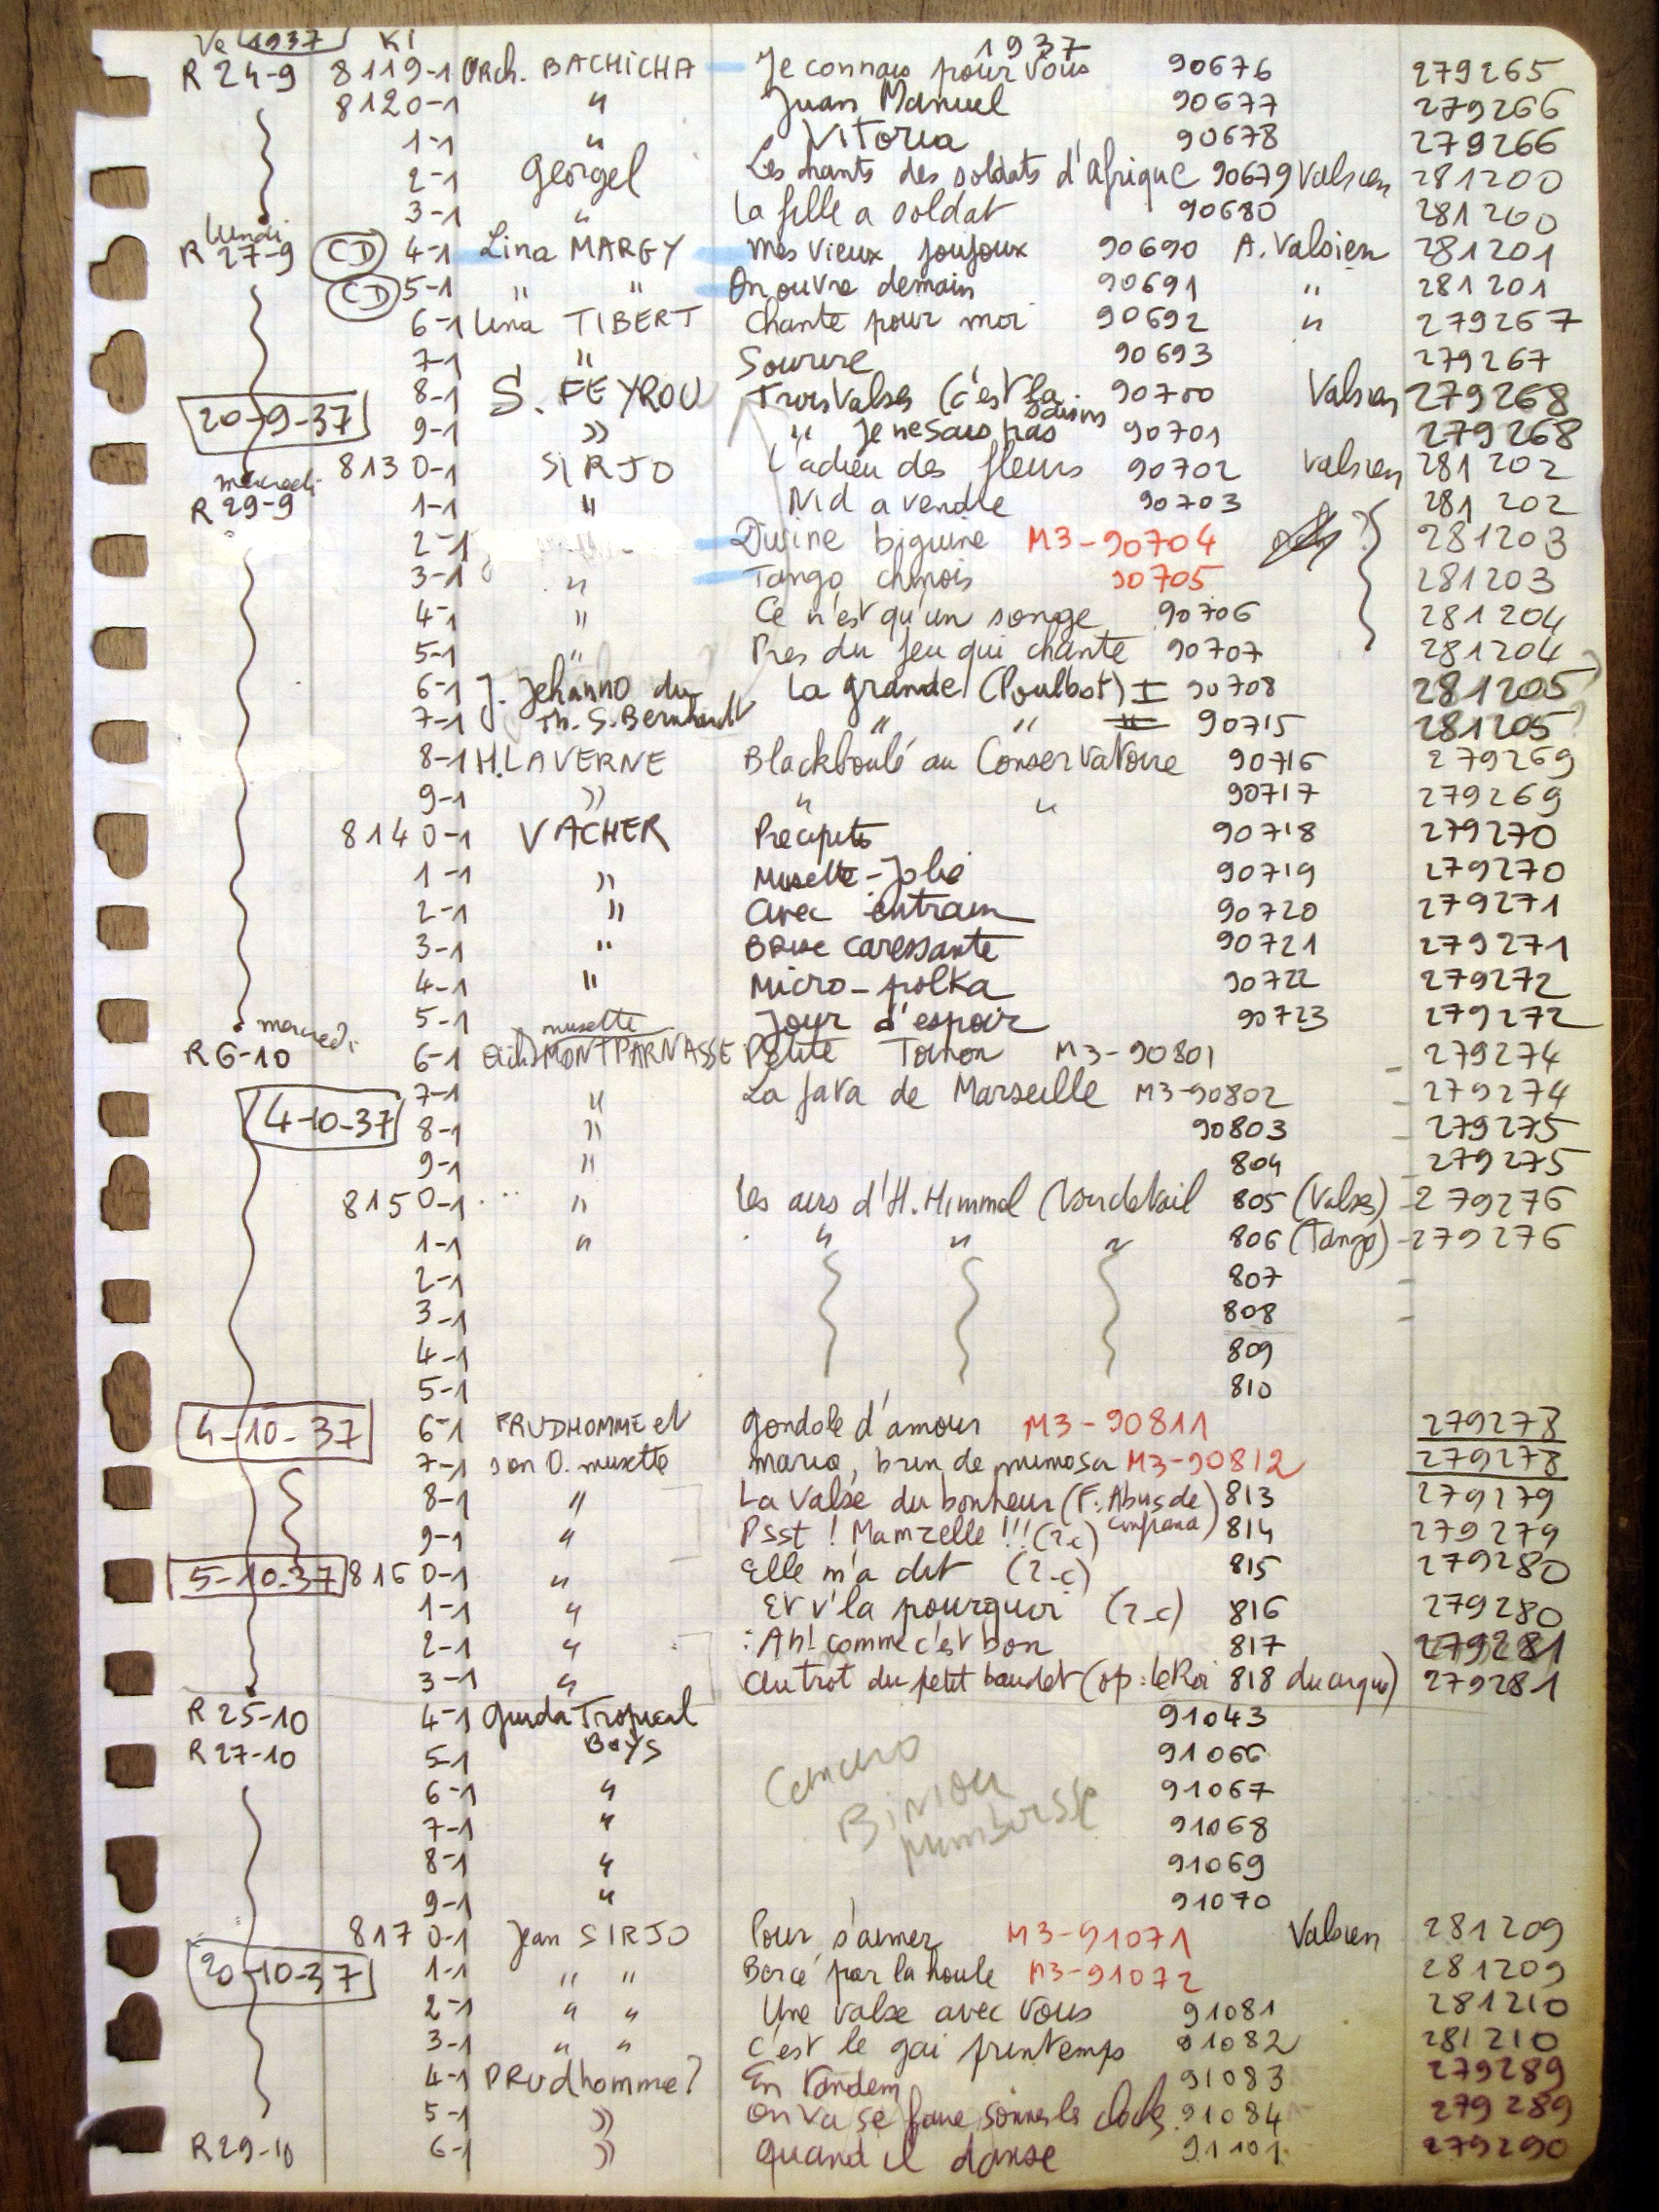 Ve 1937 KI 1937
R 24-9 8119-1 Orch. BACHICHA Je connais pour vous 90676 279265
8120-1 " Juan Manuel 90677 279266
1-1 " Vitoria 90678 279266
2-1 Georgel Les chants des soldats d'Afrique 90679 Valsien 281200
3-1 " la fille a soldat 90680 281200
lundi
R 27-9 CD 4-1 Lina MARGY Mes vieux joujoux 90690 A. Valsien 281201
CD 5-1 " " On ouvre demain 90691 " 281201
6-1 Lina TIBERT Chante pour moi 90692 " 279267
7-1 " Sourire 90693 279267
8-1 S. FEYROU Trois valses (c'est la saisons 90700 Valsien 279268
20-9-37 9-1 " " Je ne sais pas 90701 279268
8130-1 SIRJO L'adieu des fleurs 90702 Valsien 281202
mercredi
R 29-9 1-1 " Nid a vendre 90703 281202
2-1 Divine biguine M3-90704 ? 281203
3-1 " Tango chinois 90705 281203
4-1 " Ce n'est qu'un songe 90706 281204
5-1 " Pres du feu qui chante 90707 281204
6-1 J. Jehanno du La grande (Poulbot) I 90708 281205
7-1 Th. S. Bernhardt " " II 90715 281205
8-1 H. LAVERNE Blackboulé au Conservatoire 90716 279269
9-1 " " " 90717 279269
8140-1 VACHER Précipito 90718 279270
1-1 " Musette-Jolie 90719 279270
2-1 " Avec entrain 90720 279271
3-1 " Brise caressante 90721 279271
4-1 " Micro-polka 90722 279272
5-1 " Jour d'espoir 90723 279272
mercredi musette
R 6-10 6-1 MONTPARNASSE Petite Tonon M3-90801 279274
7-1 " La Java de Marseille M3-90802 279274
4-10-37 8-1 " 90803 279275
9-1 " 804 279275
8150-1 " Les airs d'H. Himmel 805 (Valses) 279276
1-1 " " " " 806 (Tango) 279276
2-1 807
3-1 808
4-1 809
5-1 810
4-10-37 6-1 PRUDHOMME et Gondole d'amour M3-90811 279278
7-1 son O. musette Maria, brin de mimosa M3-90812 279278
8-1 " La valse du bonheur (F: Abus de confiance) 813 279279
9-1 " Psst ! Mamzelle !!! (2-c) 814 279279
5-10-37 8160-1 " Elle m'a dit (2-c) 815 279280
1-1 " Et v'la pourquoi (2-c) 816 279280
2-1 " : Ah! comme c'est bon 817 279281
3-1 " Au trot du petit baudet (op: le Roi 818 du cirque) 279281
R 25-10 4-1 Tropical 91043
R 27-10 Boys
5-1 91066
6-1 " 91067
7-1 " 91068
8-1 " 91069
9-1 " 91070
8170-1 Jean SIRJO Pour s'aimer M3-91071 Valsien 281209
20-10-37 1-1 " " Bercé par la houle M3-91072 281209
2-1 " " Une valse avec vous 91081 281210
3-1 " " C'est le gai printemps 91082 281210
4-1 PRUdhomme? En Tandem 91083 279289
5-1 " On va se faire sonner les cloch. 91084 279289
R 29-10 6-1 " Quand il danse 91101 279290